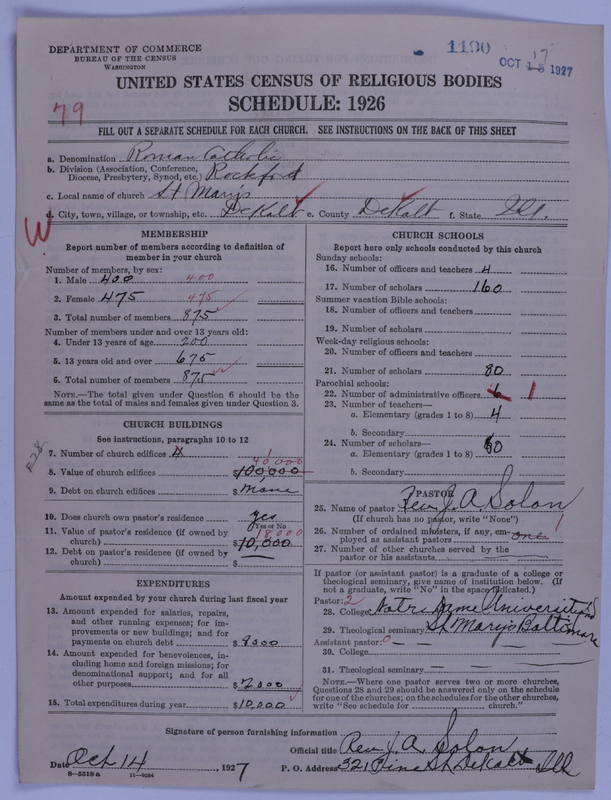 DEPARTMENT OF COMMERCE
BUREAU OF THE CENSUS
WASHINGTON
1190
OCT 15 1927
17
UNITED STATES CENSUS OF RELIGIOUS BODIES
SCHEDULE: 1926
79
FILL OUT A SEPARATE SCHEDULE FOR EACH CHURCH. SEE INSTRUCTIONS ON THE BACK OF THIS SHEET
a. Denomination Roman Catholic
b. Division (Association, Conference, Diocese, Presbytery, Synod, etc.) Rockford
c. Local name of church St Marys
d. City, town, village, or township, etc. DeKalb e. County DeKalb f. State Ill.
W
MEMBERSHIP
Report number of members according to definition of
member in your church
Number of members, by sex:
1. Male 400 400
2. Female 475 475
3. Total number of members 875
Number of members under and over 13 years old:
4. Under 13 years of age 200
5. 13 years old and over 675
6. Total number of members 875
NOTE.—The total given under Question 6 should be
the same as the total of males and females given under Question 3.
CHURCH BUILDINGS
See instructions, paragraphs 10 to 12
7. Number of church edifices 1
8. Value of church edifices $100,000 40,000
9. Debt on church edifices $ None
10. Does church own pastor's residence? yes
Yes or No
11. Value of pastor's residence (if owned by
church) $10,000 18,000
12. Debt on pastor's residence (if owned by
church) $ —
EXPENDITURES
Amount expended by your church during last fiscal year
13. Amount expended for salaries, repairs,
and other running expenses; for im-
provements or new buildings; and for
payments on church debt $ 8000
14. Amount expended for benevolences, in-
cluding home and foreign missions; for
denominational support; and for all
other purposes $ 2000
15. Total expenditures during year $10,000
CHURCH SCHOOLS
Report here only schools conducted by this church
Sunday schools:
16. Number of officers and teachers 4
17. Number of scholars 160
Summer vacation Bible schools:
18. Number of officers and teachers
19. Number of scholars
Week-day religious schools:
20. Number of officers and teachers
21. Number of scholars 80
Parochial schools:
22. Number of administrative officers 6 1
23. Number of teachers—
a. Elementary (grades 1 to 8) 4
b. Secondary
24. Number of scholars—
a. Elementary (grades 1 to 8) 60
b. Secondary
PASTOR
25. Name of pastor Rev. J. A. Solon
(If church has no pastor, write "None")
26. Number of ordained ministers, if any, em-
ployed as assistant pastors one 1
27. Number of other churches served by the
pastor or his assistants
If pastor (or assistant pastor) is a graduate of a college or
theological seminary, give name of institution below. (If
not a graduate, write "No" in the space indicated.)
Pastor: 2
28. College Notre Dame University Ind
29. Theological seminary St Marys Baltimore
Assistant pastor: 0
30. College
31. Theological seminary
NOTE.—Where one pastor serves two or more churches,
Questions 28 and 29 should be answered only on the schedule
for one of the churches; on the schedules for the other churches,
write "See schedule for church."
Signature of person furnishing information
Official title Rev. J. A. Solon
Date Oct 14, 1927 P. O. Address 321 Pine St DeKalb Ill
8—5518 a 11—9284